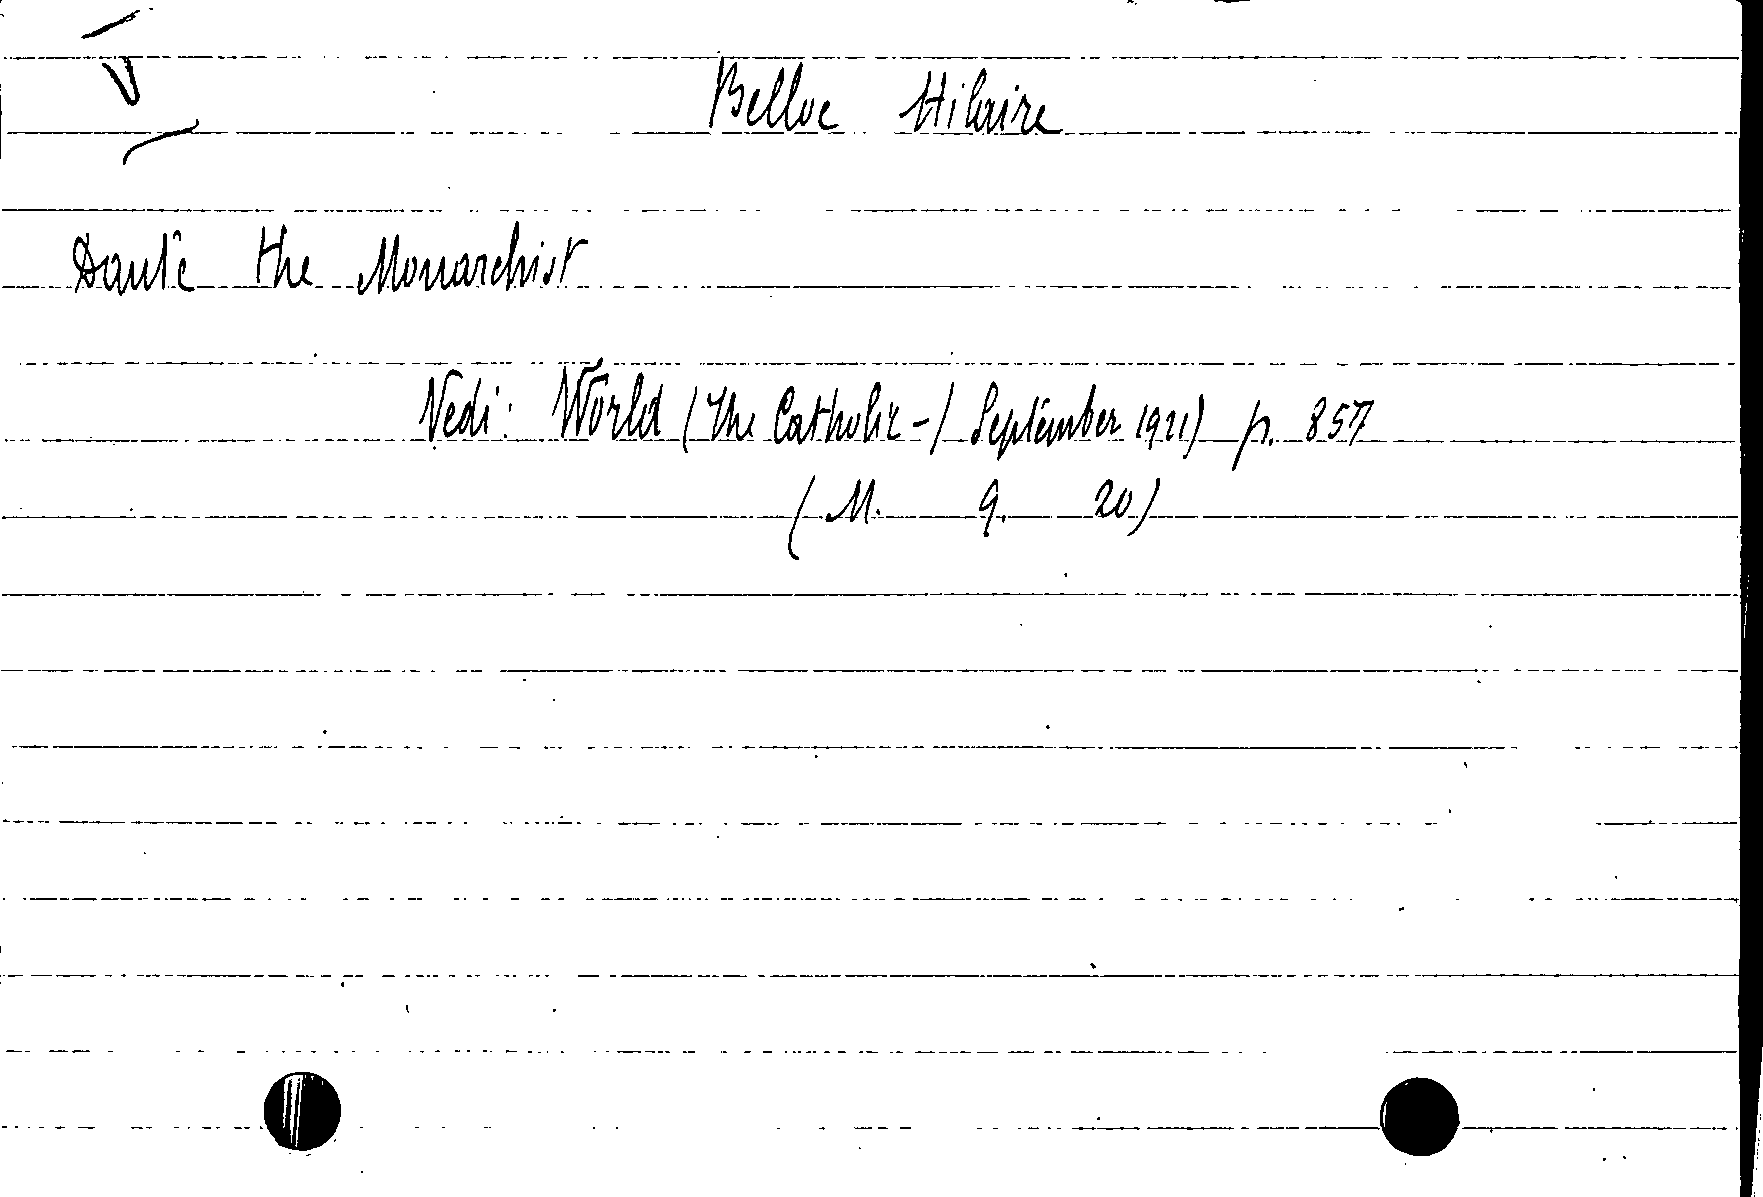 Belloc Hilaire
Dante the Monarchist
Vedi: World (The Catholic -) September 1921) p. 857
(M. 9. 20)